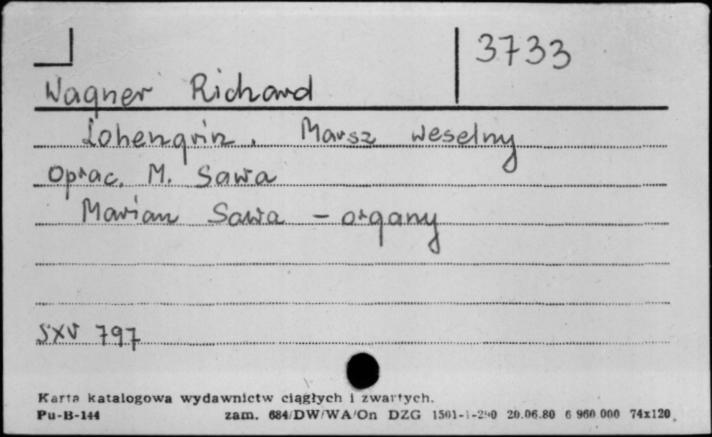 3733
Wagner Richard
Lohengrin. Marsz weselny
Oprac. M. Sawa
Marian Sawa - organy
SXV 797
Karta katalogowa wydawnictw ciągłych i zwartych.
Pu-B-144 zam. 684/DW/WA/On DZG 20.06.80 6 960 000 74x120